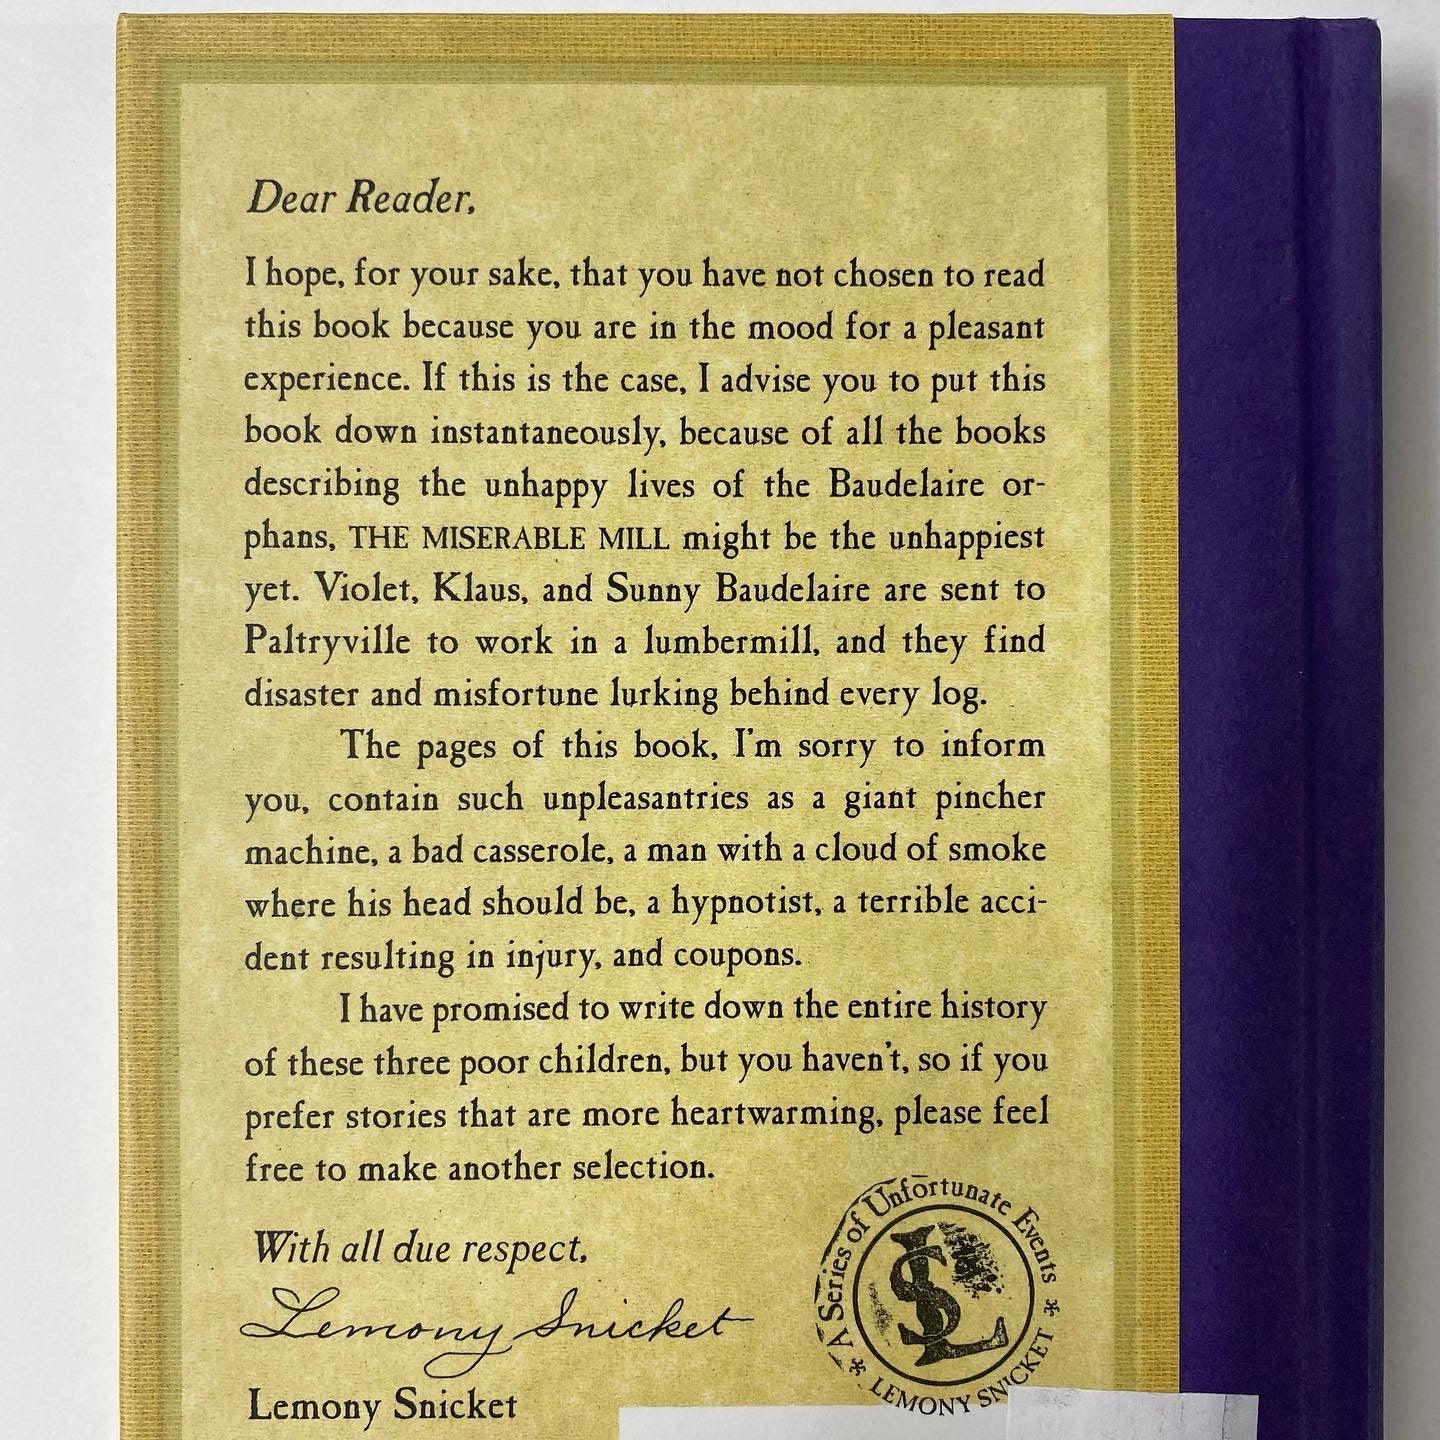 Dear Reader,
I hope, for your sake, that you have not chosen to read
this book because you are in the mood for a pleasant
experience. If this is the case, I advise you to put this
book down instantaneously, because of all the books
describing the unhappy lives of the Baudelaire or-
phans, THE MISERABLE MILL might be the unhappiest
yet. Violet, Klaus, and Sunny Baudelaire are sent to
Paltryville to work in a lumbermill, and they find
disaster and misfortune lurking behind every log.
The pages of this book, I'm sorry to inform
you, contain such unpleasantries as a giant pincher
machine, a bad casserole, a man with a cloud of smoke
where his head should be, a hypnotist, a terrible acci-
dent resulting in injury, and coupons.
I have promised to write down the entire history
of these three poor children, but you haven't, so if you
prefer stories that are more heartwarming, please feel
free to make another selection.
With all due respect,
Lemony Snicket
Lemony Snicket
A Series of Unfortunate Events
LS
LEMONY SNICKET